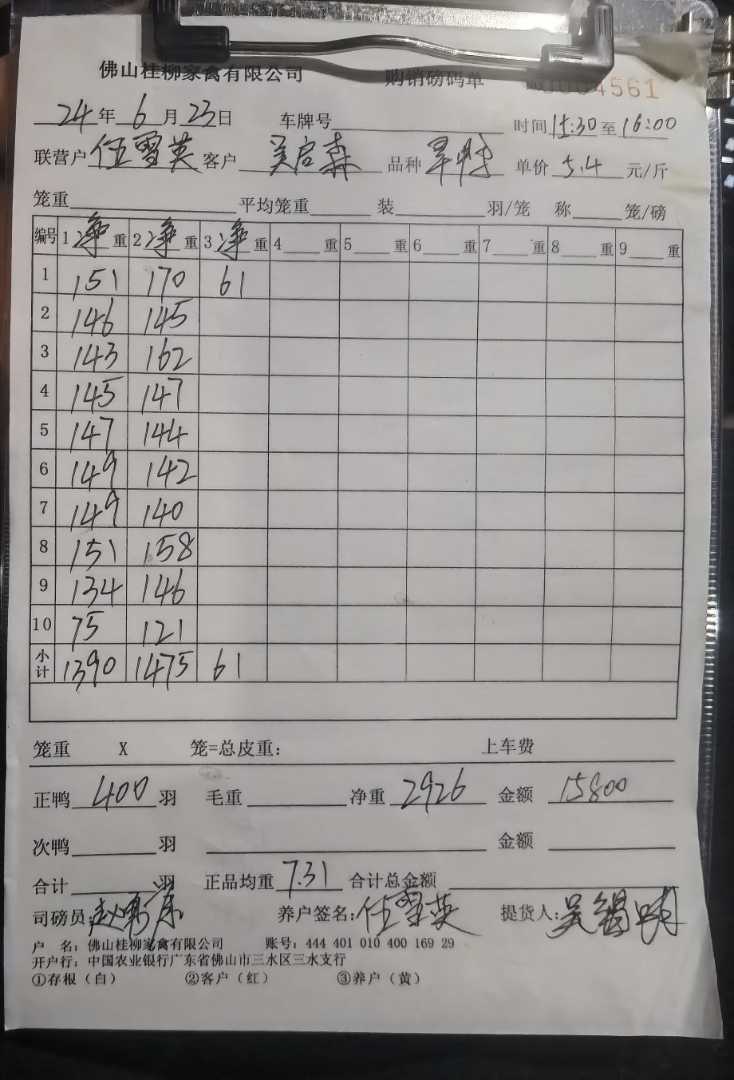 佛山桂柳家禽有限公司 购销磅码单 4561
24年6月23日 车牌号 时间15:30至16:00
联营户 伍雪英 客户 吴启森 品种 单价 5.4 元/斤
笼重 平均笼重 装 羽/笼 称 笼/磅
编号 1净重 2净重 3净重 4重 5重 6重 7重 8重 9重
1 151 170 61
2 146 145
3 143 162
4 145 147
5 147 144
6 149 142
7 149 140
8 151 158
9 134 146
10 75 121
小计 1390 1475 61
笼重 X 笼=总皮重: 上车费
正鸭 400 羽 毛重 净重 2926 金额 15800
次鸭 羽 金额
合计 羽 正品均重 7.31 合计总金额
司磅员: 养户签名: 伍雪英 提货人: 吴
户 名: 佛山桂柳家禽有限公司 账号: 444 401 010 400 169 29
开户行: 中国农业银行广东省佛山市三水区三水支行
①存根（白） ②客户（红） ③养户（黄）